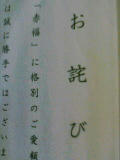 お詫び
「赤福」に格別のご愛顧
は誠に勝手ではございま